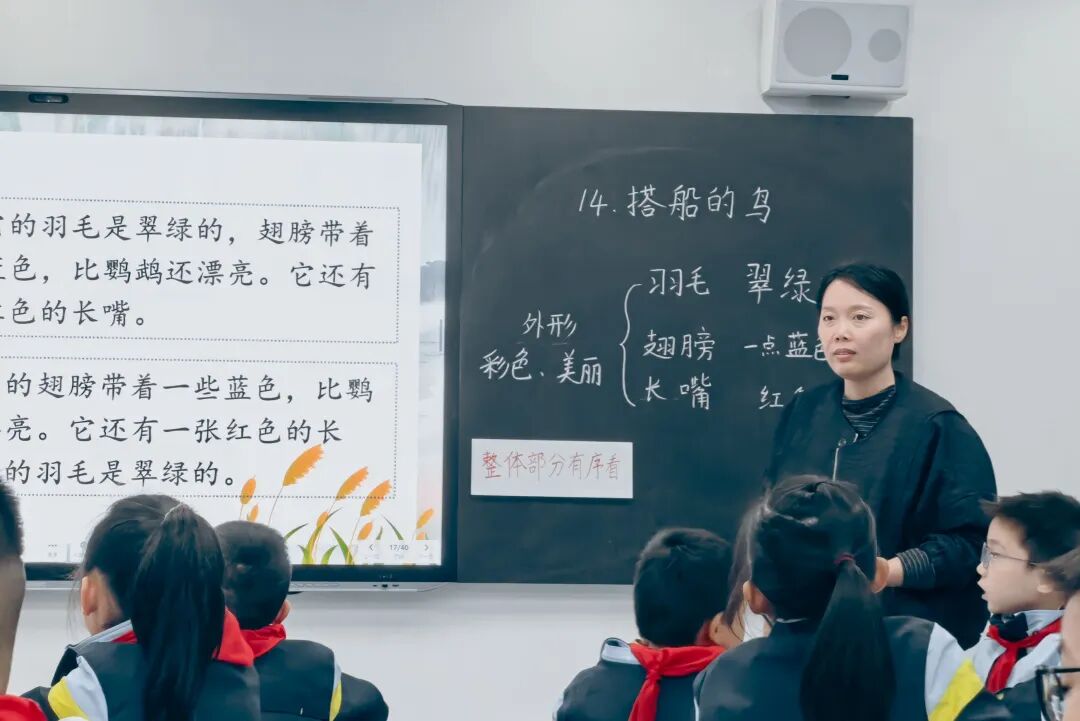 的羽毛是翠绿的，翅膀带着
蓝色，比鹦鹉还漂亮。它还有
色的长嘴。
的翅膀带着一些蓝色，比鹦
亮。它还有一张红色的长
的羽毛是翠绿的。
17/40
14.搭船的鸟
外形
彩色、美丽
羽毛 翠绿
翅膀 一点蓝色
长嘴 红
整体部分有序看